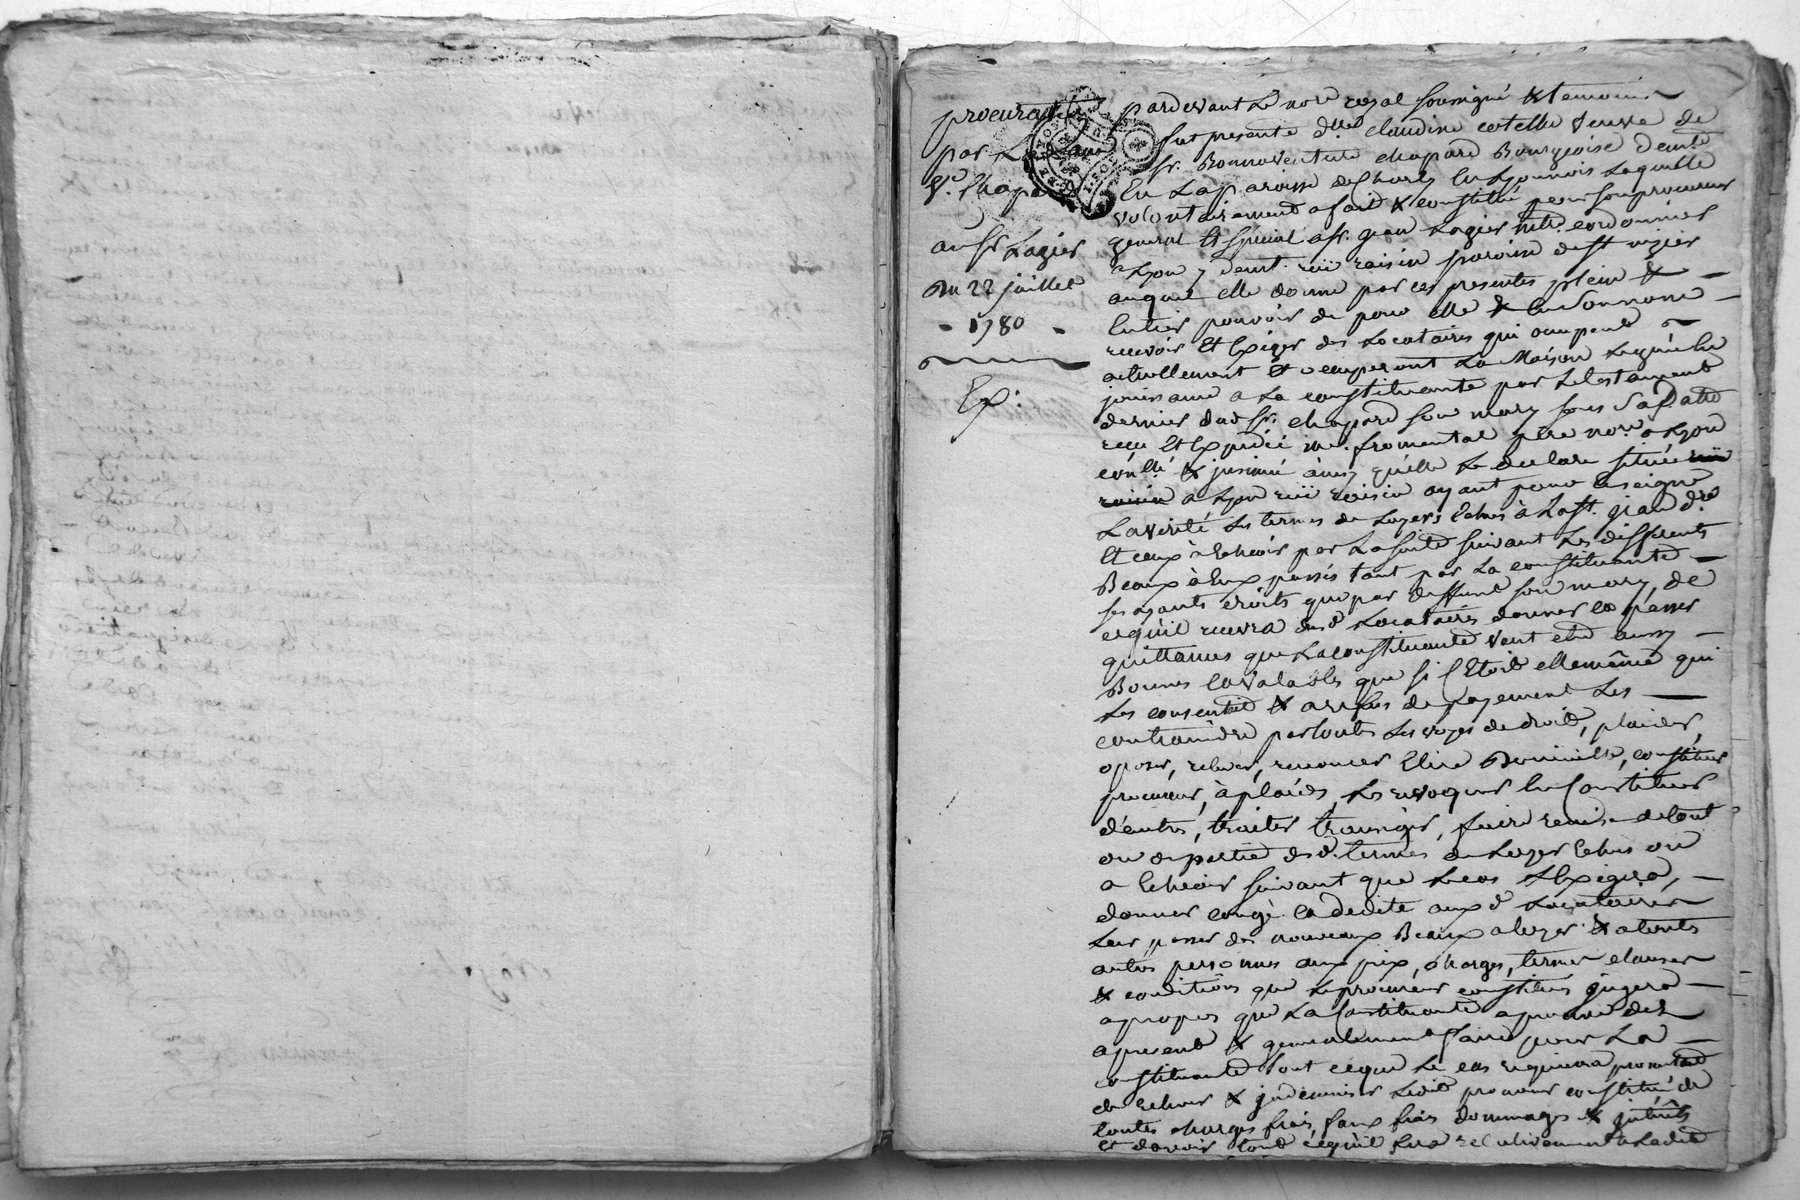 procuration
par
Vve Chapard
au sr Lagier
du 22 juillet
1780
Exp:
pardevant le nore royal soussigné & temoins
fut presente dlle claudine veuve de
sr. Bonnaventure chapard Bourgeoise demte
En La paroisse de Charly En Lyonnois Laquelle
volontairement a fait & constitué pour son procureur
general Et spécial sr. jean Lagier mtre cordonnier
a Lyon y demt. rüe raisin paroisse de st nizier
auquel elle donne par ces presentes plein &
Entier pouvoir de pour elle & En son nom
recevoir Et Exiger des Locataires qui occupent
actuellement Et occuperont La Maison Leguée En
jouissance a La constituante par Le testament
dernier dud sr. chapard son mary sous Sa datte
reçu Et Expédié me. fromental père nore a Lyon
conllé & jnsinué ainsy qu'elle Le declare située rüe
raisin a Lyon rüe raisin ayant pour Enseigne
La verité Les termes de Loyers Echus à La st. jean dre
Et ceux à Echeoir par La suite suivant Les differents
Beaux à Eux passés tant par La constituante
ses ayants droits que par deffunt son mary, de
ce qu'il recevra desd Locataires donner Et passer
quittances que La constituante veut etre aussy
Bonnes Et valables que si C'Etoit elle même qui
Les consentit & a refus de payement Les
contraindre par toutes Les voyes de droit, plaider,
oposer, renoncer Elire Domicille, constituer
procureur, à plaids, Les revoquer En Constituer
d'autres, traiter transiger, faire remise de tout
ou de partie desd. termes de Loyer Echus ou
a Echeoir suivant que Le cas L'Exigera,
donner congé Et dedite auxd Locataires
Leur passer des nouveaux Beaux a loyer & a toutes
autres personnes aux prix, charges, termes clauses
& conditions que Le procureur constitué jugera
a propos que La Constituante aprouve dès
a present & generalement faire pour La
constituante tout ce que Le cas requierra promettant
& jndemniser Ledit procureur constitué de
toutes charges frais, faux frais dommages & jnterêts
Et d'avoir tout ce qu'il fera relativement a Ladite